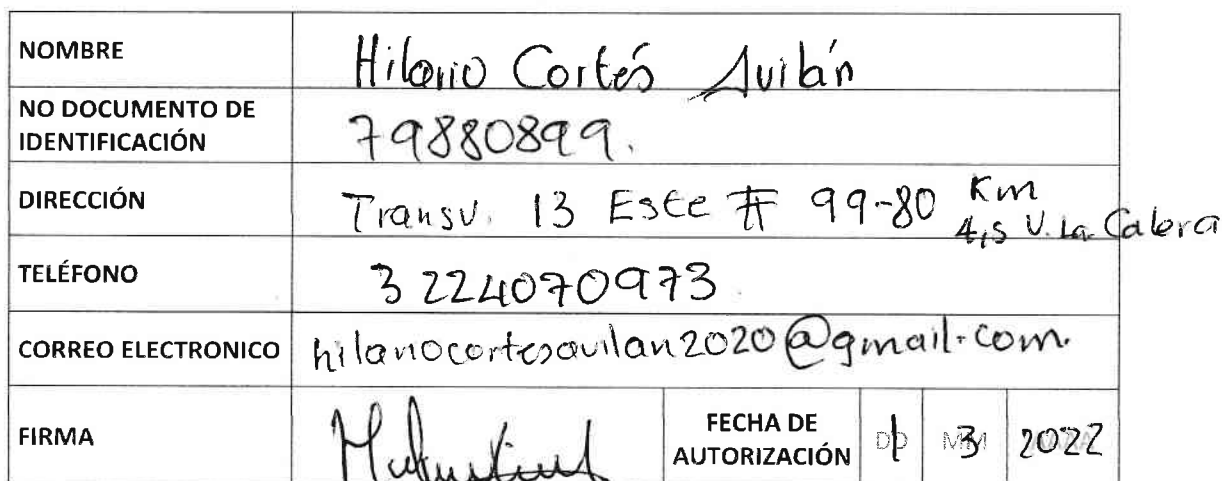 NOMBRE Hilario Cortés Avilán
NO DOCUMENTO DE
IDENTIFICACIÓN 79880899.
DIRECCIÓN Transv. 13 Este # 99-80 Km
4,5 V. La Calera
TELÉFONO 3224070973
CORREO ELECTRONICO hilariocortesavilan2020@gmail.com
FIRMA FECHA DE
AUTORIZACIÓN DD 1 MM 3 2022